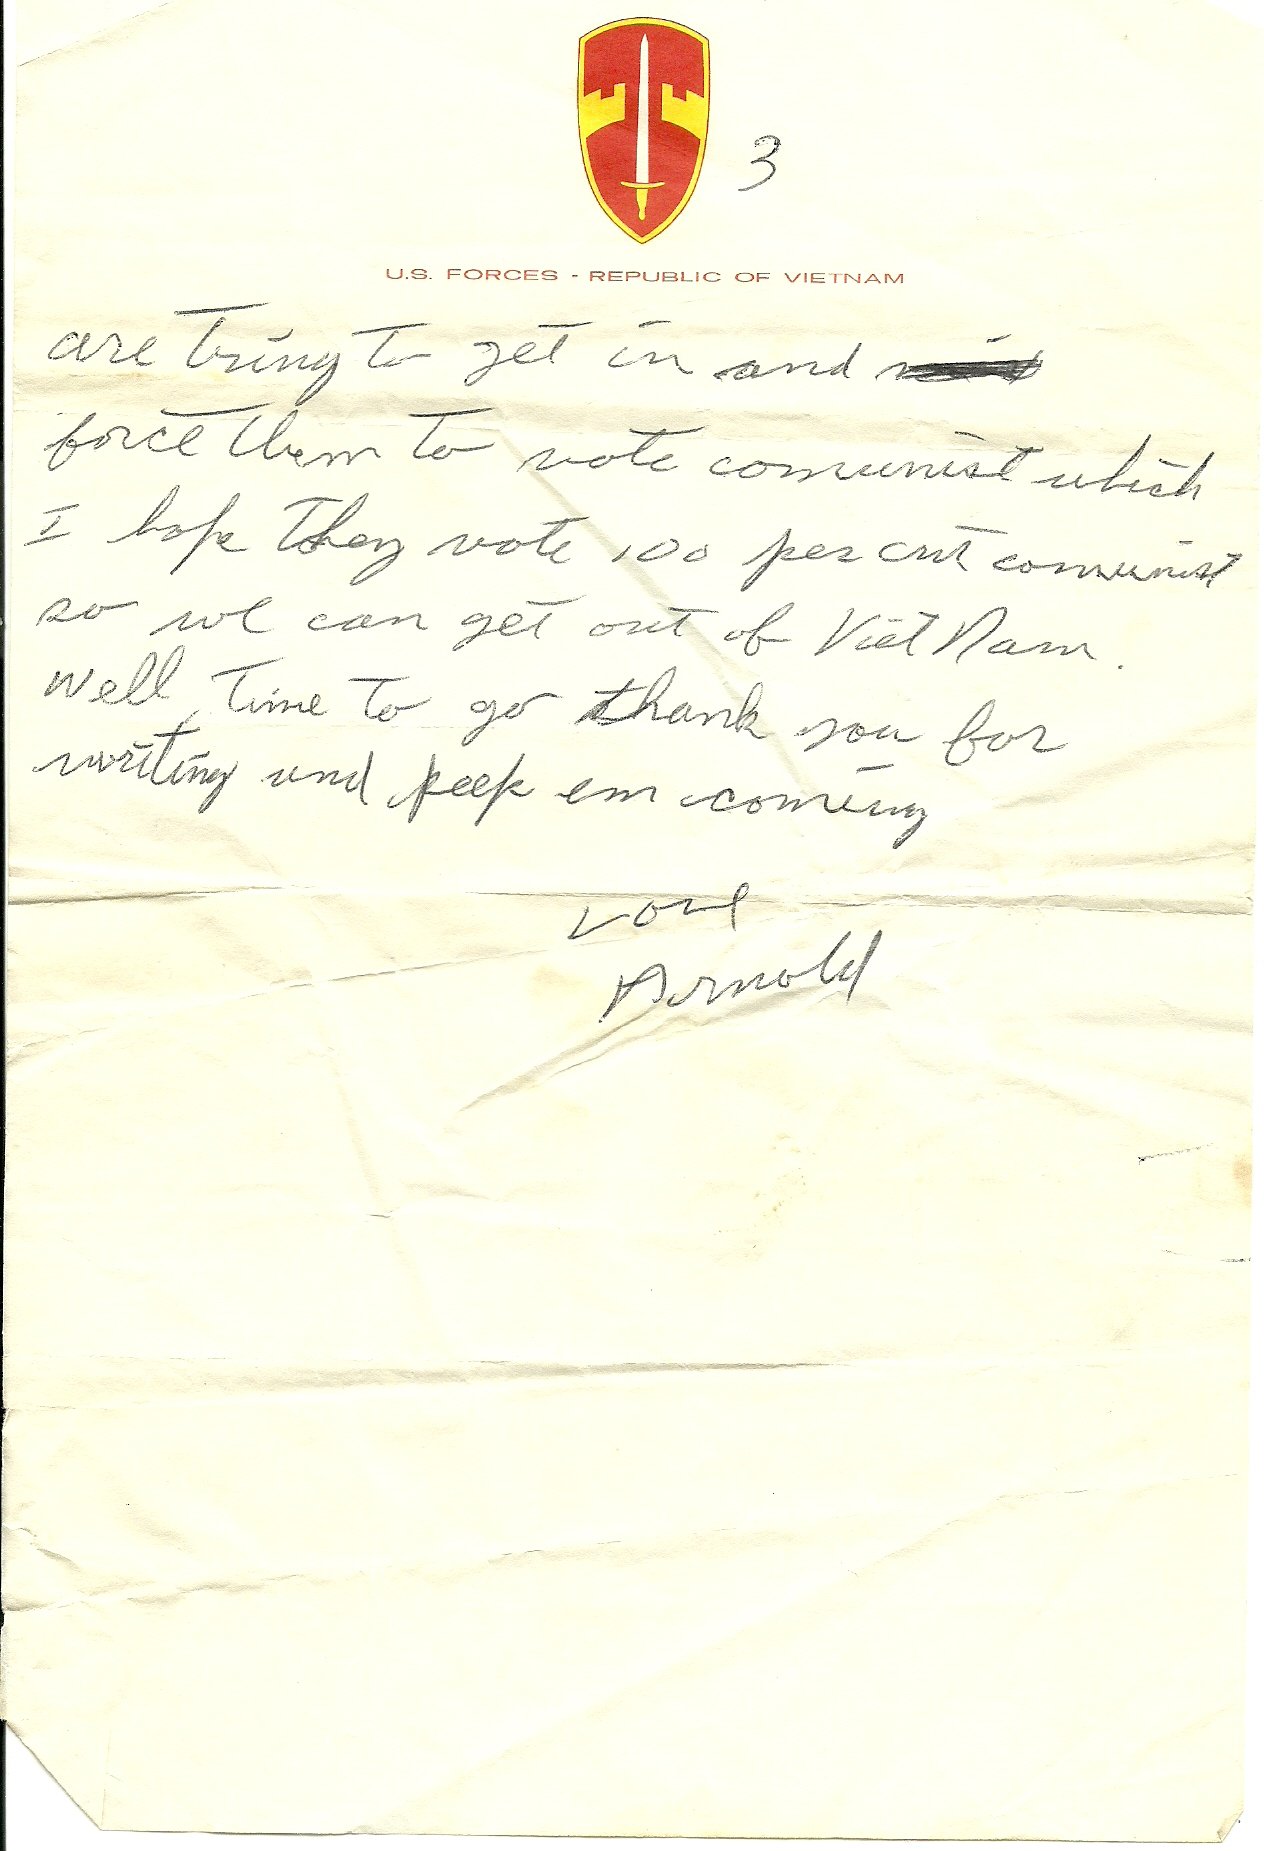 3
U.S. FORCES - REPUBLIC OF VIETNAM
are tring to get in and
force them to vote comunist which
I hope they vote 100 per cent comunist
so we can get out of Viet Nam.
well, time to go thank you for
writing and keep em coming
Love
Arnold